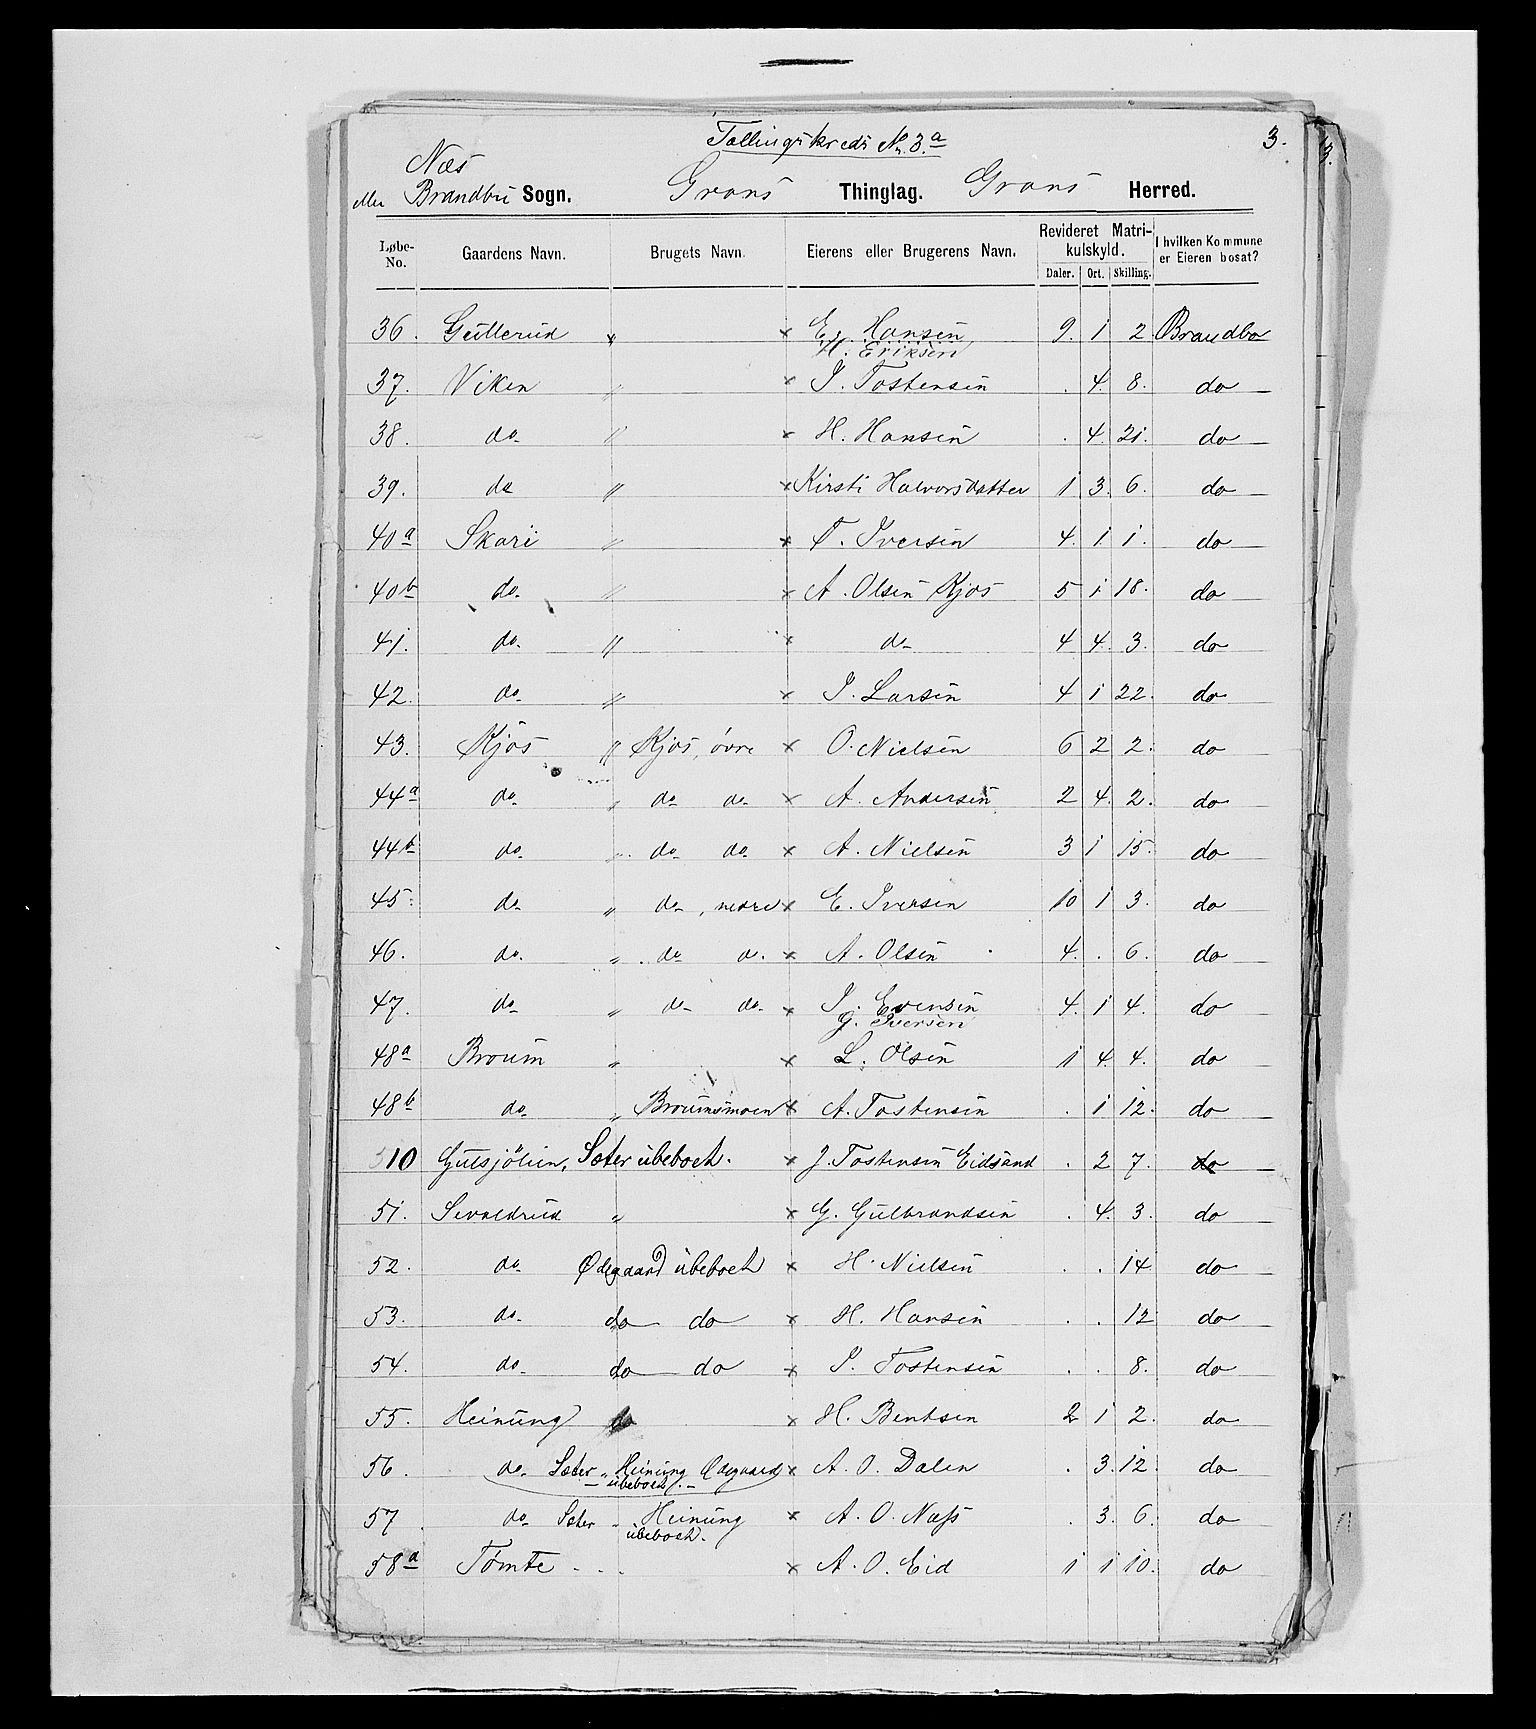 Tællingskreds No. 3a
3.
3.
Næs
eller Brandbu Sogn. Grans Thinglag. Grans Herred.
Løbe-No. Gaardens Navn. Brugets Navn. Eierens eller Brugerens Navn. Revideret Matrikulskyld. Daler. Ort. Skilling. I hvilken Kommune er Eieren bosat?
36. Gullerud " × E. Hansen 9. 1 2 Brandbo
H. Eriksen
37. Viken " × I. Tostensen . 4. 8. do
38. do " × H. Hansen . 4. 21. do
39. do " × Kirsti Halvorsdatter 1 3. 6. do
40a Skari " × T. Iversen 4. 1. 1. do
40b do " × A. Olsen Kjos 5 1 18. do
41. do " × do 4 4. 3. do
42. do " × I. Larsen 4 1 22. do
43. Kjos " Kjos, övre × O. Nielsen 6 2 2. do
44a do " do do × A. Andersen 2 4. 2. do
44b do " do do × A. Nielsen 3 1 15. do
45. do " do, nedre × E. Iversen 10 1 3. do
46. do " do do × A. Olsen 4. . 6. do
47. do " do do × I. Evensen 4. 1 4. do
G. Iversen
48a Broum " × L. Olsen 1 4. 4. do
48b do " Broumsmoen × A. Tostensen . 1 12. do
510 Gulsjölien, Sæter ubeboet. × J. Tostensen Eidsand . 2 7. do
51. Sevaldrud " × G. Gulbrandsen . 4. 3. do
52. do Ødegaard ubeboet × H. Nielsen . . 14 do
53. do do do × H. Hansen . . 12 do
54. do do do × I. Tostensen . . 8. do
55. Heinung do × H. Bentsen 2 1 2. do
56. do Sæter " Heinung Ødegaard × A. O. Dalen . 3. 12. do
ubeboet.
57. do Sæter " Heinung × A. O. Næss . 3. 6. do
ubeboet.
58a Tömte . . . × A. O. Eid 1 1 10. do